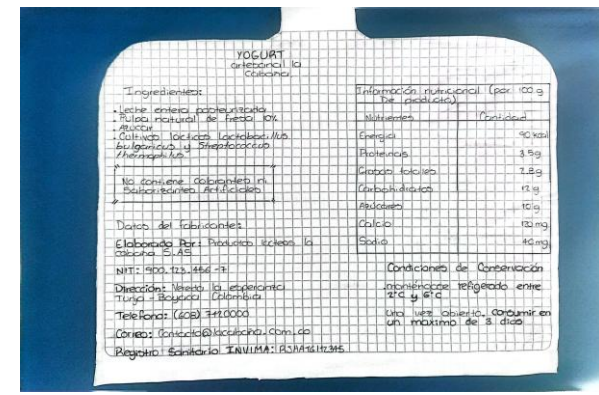 YOGURT
artesanal la
Cabaña
Ingredientes:
• Leche entera pasteurizada
• Pulpa natural de fresa 10%
• Azucar
• Cultivos lácticos Lactobacillus
bulgaricus y Streptococcus
thermophilus
No contiene Colorantes ni
Saborizantes Artificiales
Datos del fabricante:
Elaborado Por: Productos lácteos la
cabaña S.AS
NIT: 900.123.456-7
Dirección: Vereda la esperanza
Tunja - Boyacá Colombia
Telefono: (608) 7420000
Correo: Contacto@lacabaña.com.co
Registro Sanitario INVIMA:
Información nutricional (por 100 g
De producto)
Nutrientes Cantidad
Energia 90 kcal
Proteinas 3.5g
Grasas totales 2.8g
Carbohidratos 12 g
Azúcares 10 g
Calcio 120 mg
Sodio 40 mg
Condiciones de Conservación
manténgase refrigerado entre
2°C y 6°C
Una vez abierto, consumir en
un maximo de 3 dias